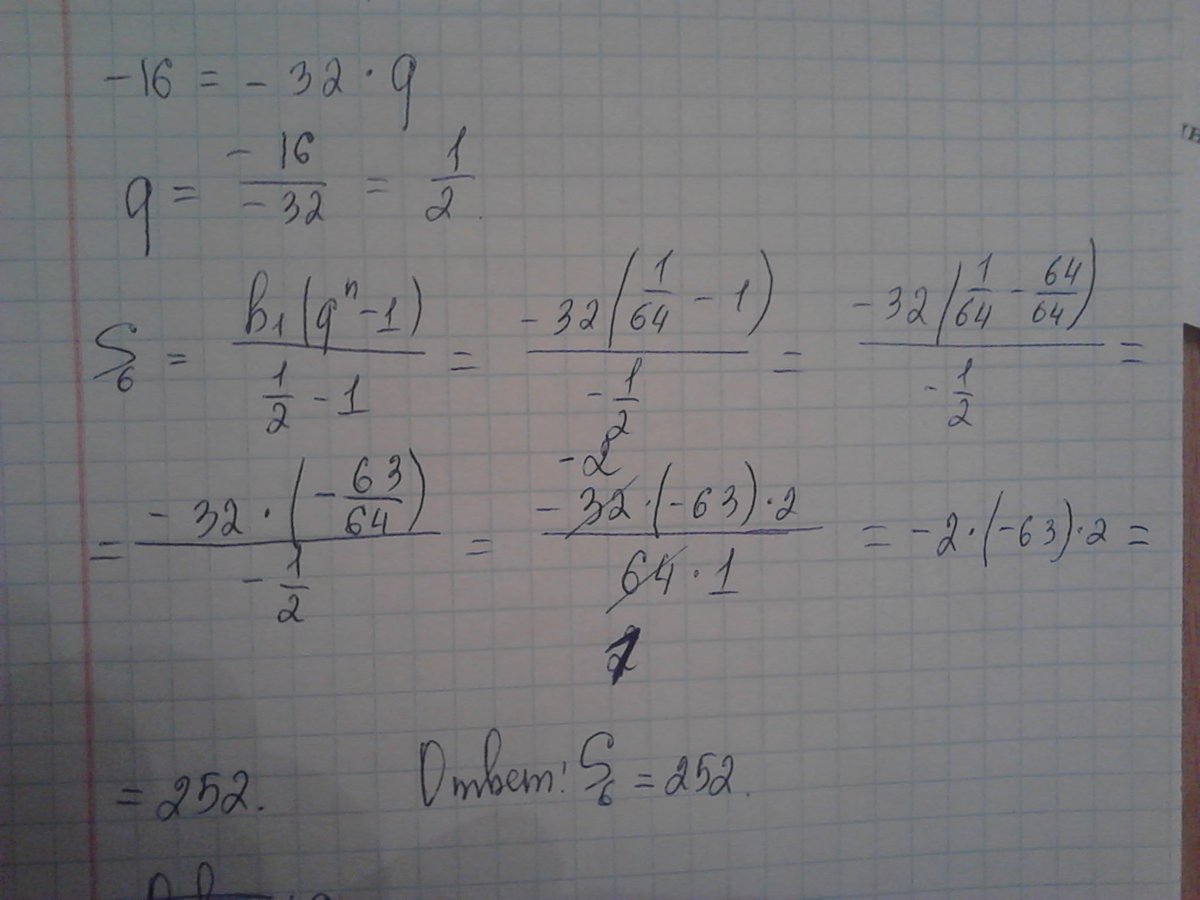 -16 = -32 · q
q = -16/-32 = 1/2.
S₆ = b₁(qⁿ-1)/(1/2 - 1) = -32(1/64 - 1)/(-1/2) = -32(1/64 - 64/64)/(-1/2) =
= -32·(-63/64)/(-1/2) = -2 -32·(-63)·2/(64·1) = -2·(-63)·2 =
= 252. Ответ: S₆ = 252.